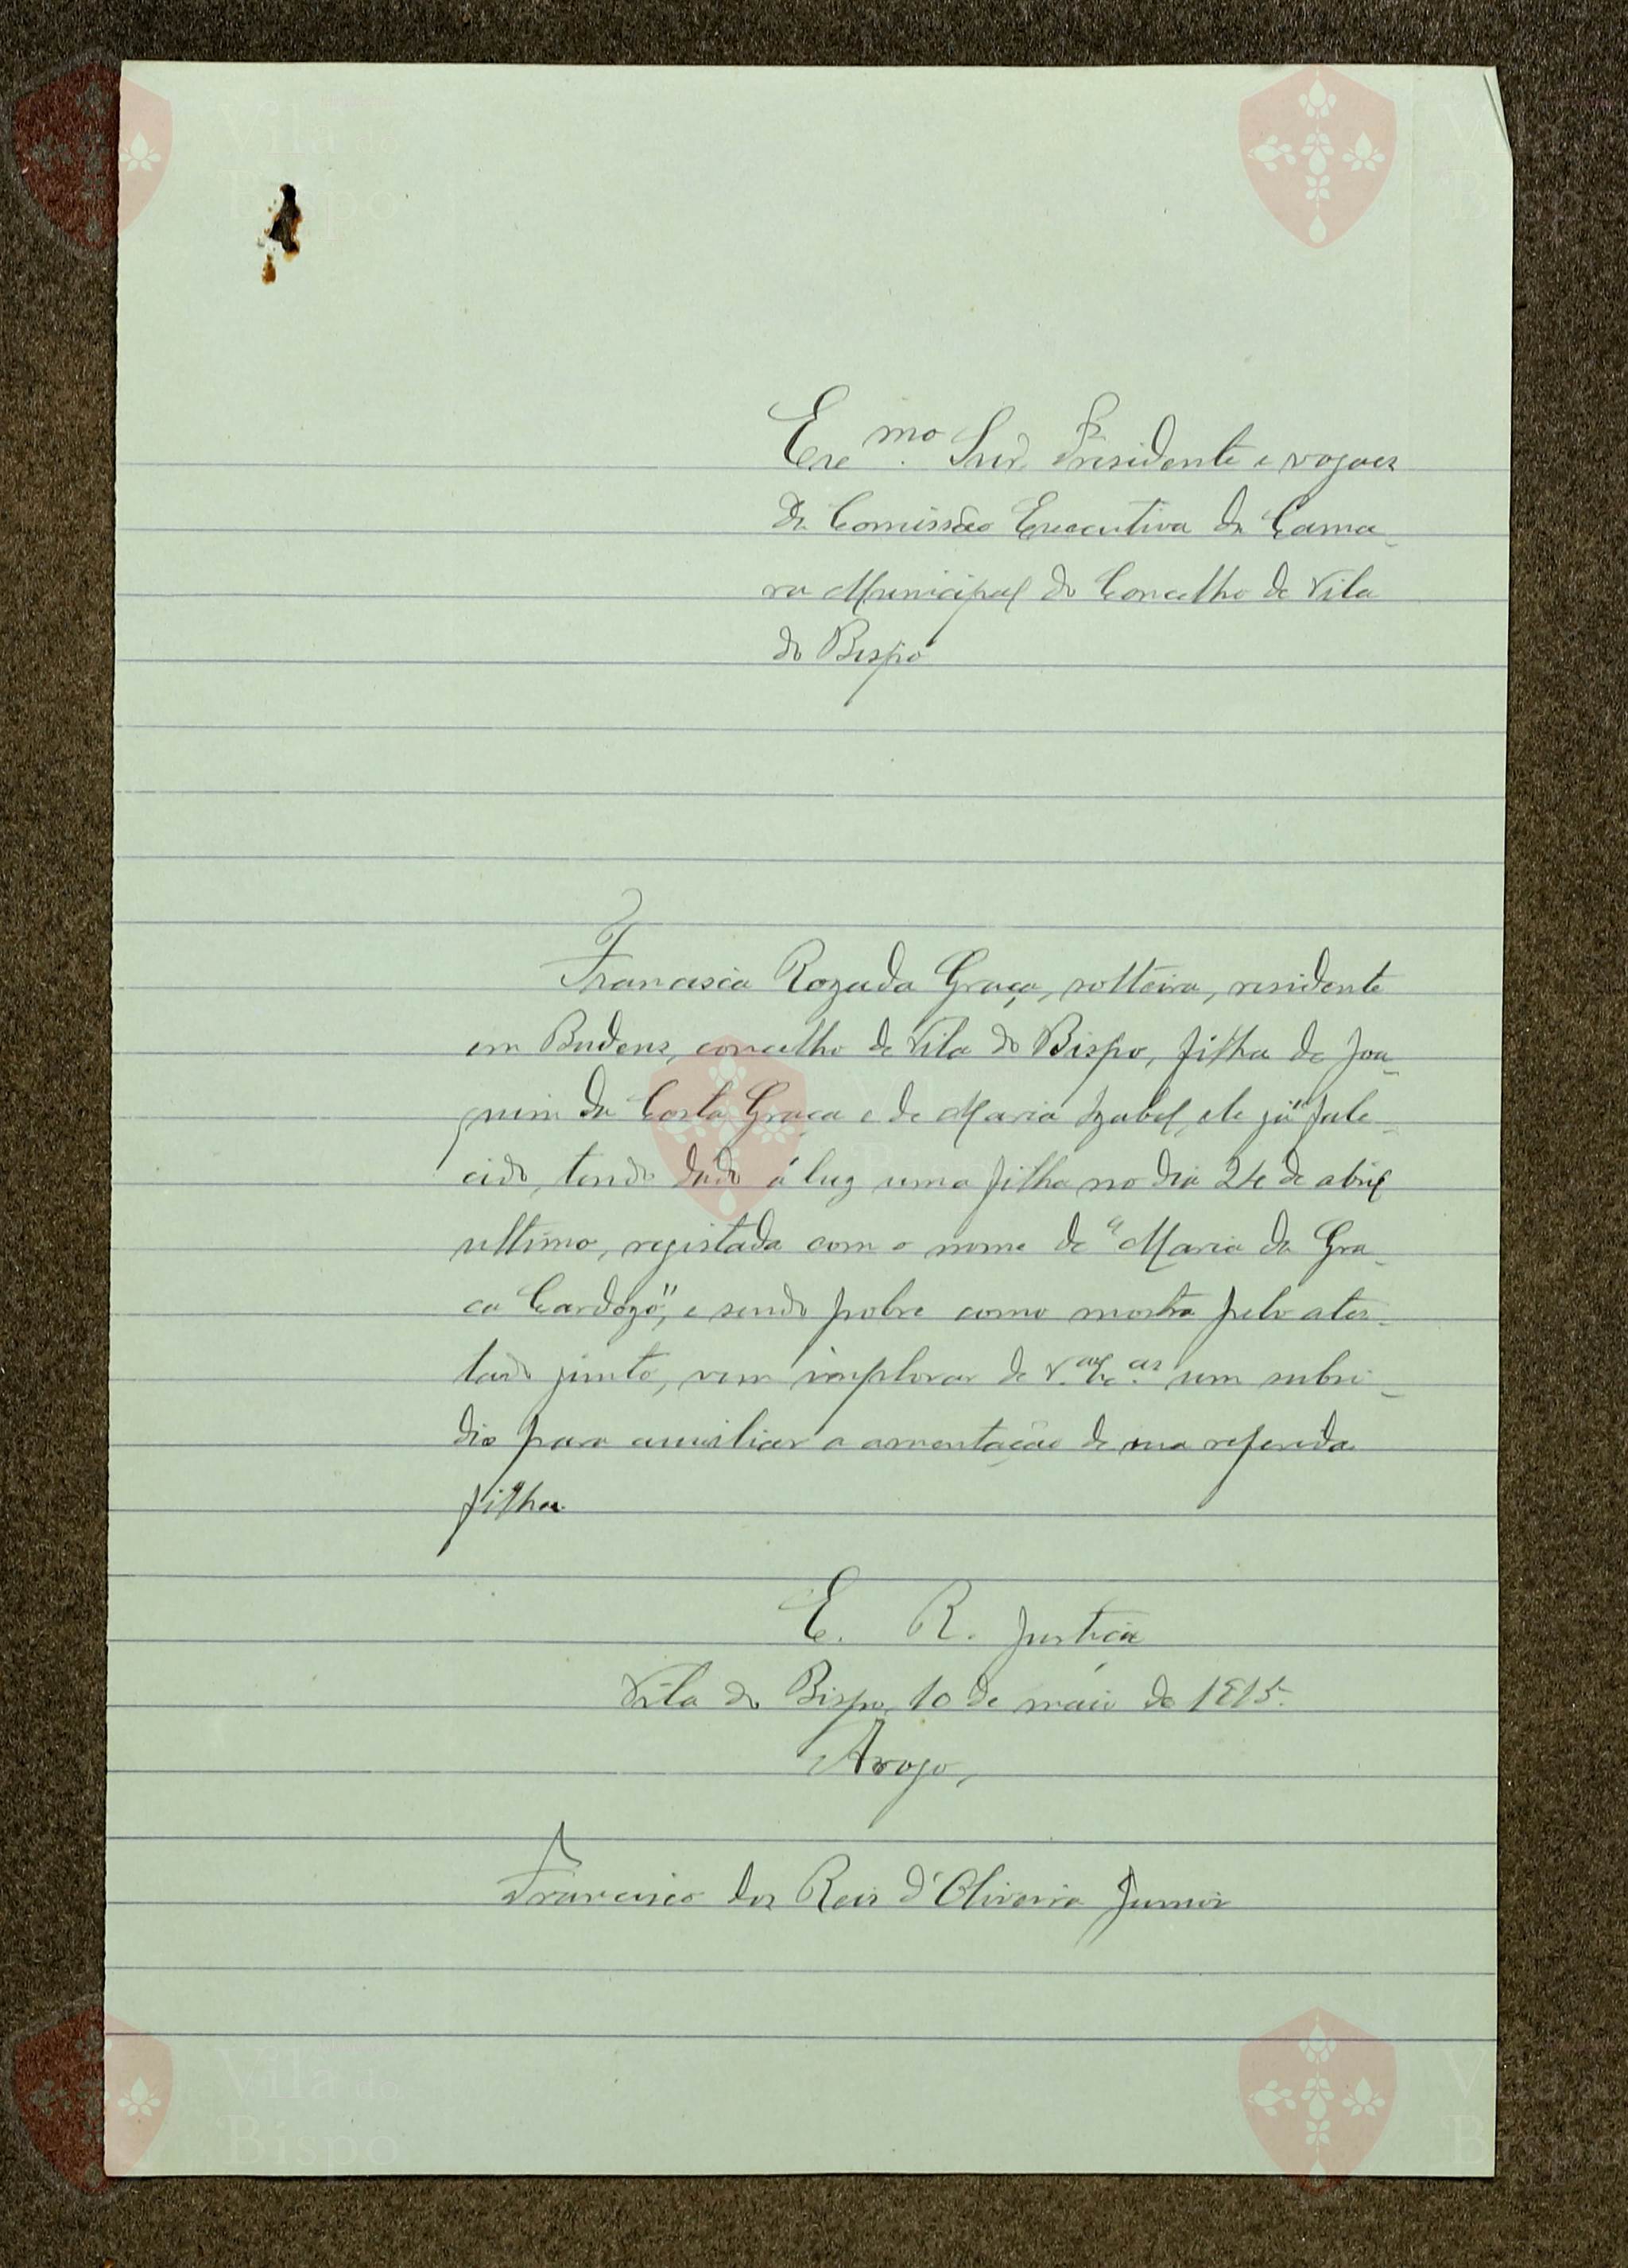 Exc.mo Snr. Presidente e vogaes
da Comissão Executiva da Cama-
ra Municipal do Concelho de Vila
do Bispo
Francisca Roza da Graça, solteira, residente
em Budens, concelho de Vila do Bispo, filha de Joa-
quim da Costa Graça e de Maria Izabel, ele já fale-
cido, tendo dado á luz uma filha no dia 24 de abril
ultimo, registada com o nome de "Maria da Gra-
ça Cardozo", e sendo pobre como mostra pelo ates-
tado junto, vem implorar de V.as Ex.cias um subsi-
dio para auxiliar a amentação de sua referida
filha
E. R. Justiça
Vila do Bispo, 10 de maio de 1915.
Arogo,
Francisco dos Reis d'Oliveira Junior
Vila do
Bispo